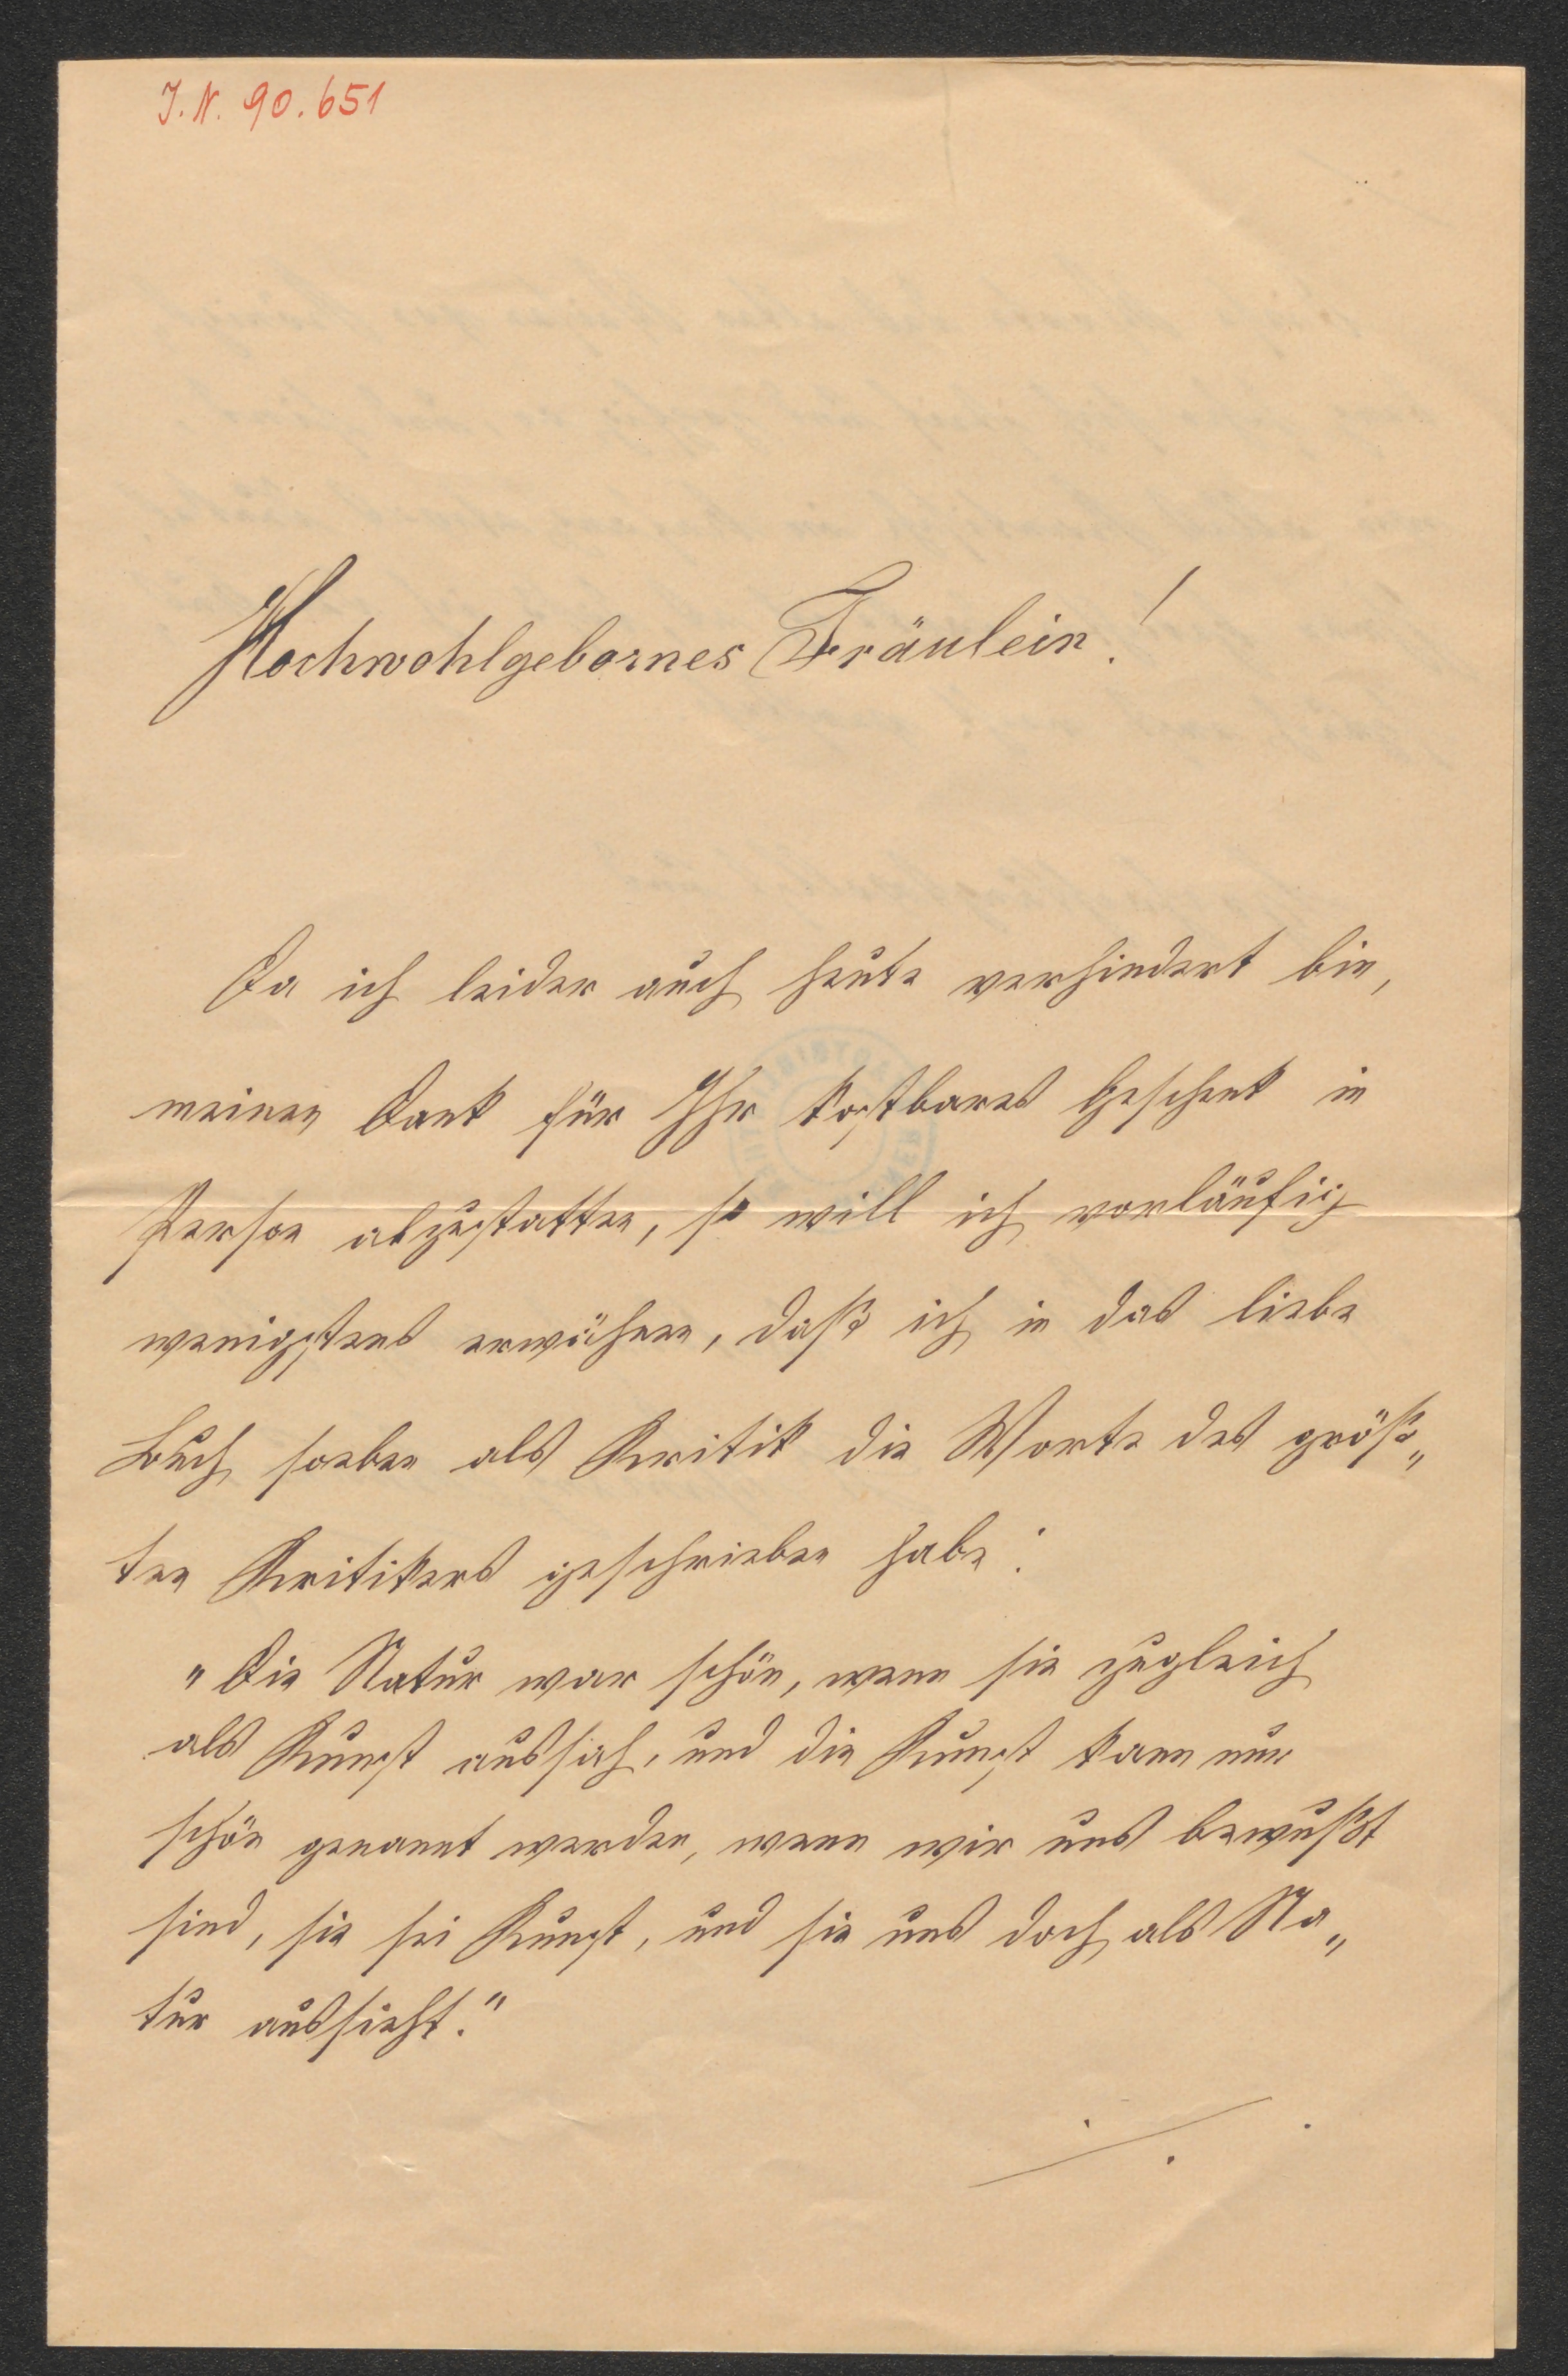 J. N. 90.651
Hochwohlgebornes Fräulein!
Da ich leider auch heute verhindert bin,
meinen Dank für Ihr kostbares Geschenk in
Person abzustatten, so will ich vorläufig
wenigstens erwähnen, daß ich in das liebe
Buch soeben als Kritik die Worte des größ„
ten Kritikers geschrieben habe:
"Die Natur war schön, wenn sie zugleich
als Kunst aussah, und die Kunst kann nur
schön genannt werden, wenn wir uns bewußt
sind, sie sei Kunst, und sie uns doch als Na„
tur aussieht."